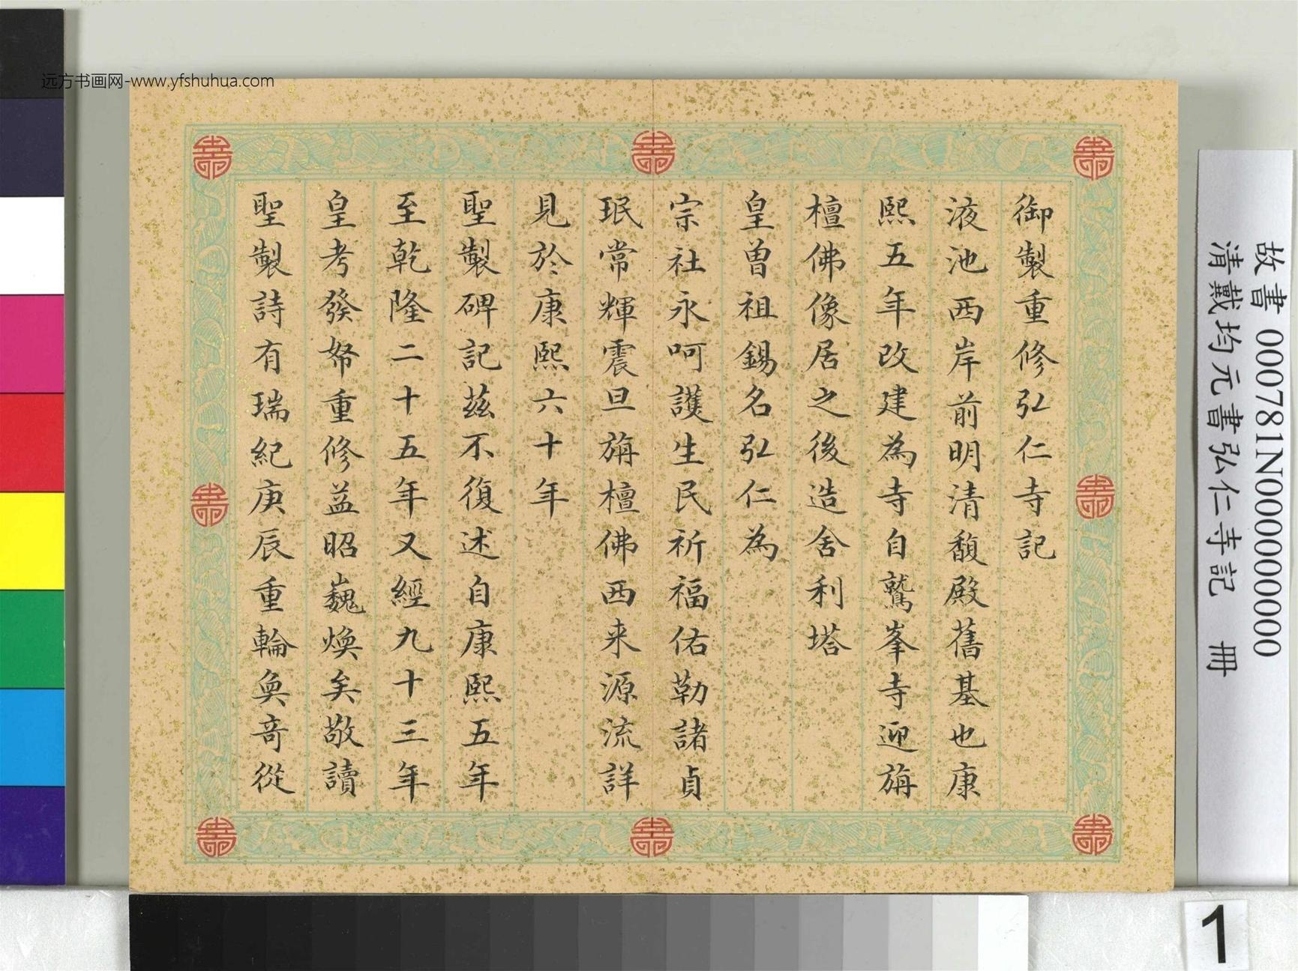 远方书画网-www.yfshuhua.com
御製重修弘仁寺記
液池西岸前明清馥殿舊基也康
熙五年改建為寺自鷲峯寺迎旃
檀佛像居之後造舍利塔
皇曾祖錫名弘仁為
宗社永呵護生民祈福佑勒諸貞
珉常輝震旦旃檀佛西来源流詳
見於康熙六十年
聖製碑記茲不復述自康熙五年
至乾隆二十五年又經九十三年
皇考發帑重修益昭巍煥矣敬讀
聖製詩有瑞紀庚辰重輪奐竒從
故書 000781N000000000
清戴均元書弘仁寺記 冊
1